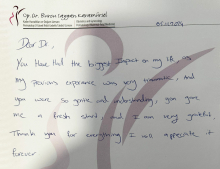 Op. Dr. Buran Seygen Keremürsel
Dear Dr,
You Have Had the biggest impact on my life
my previous experience was very traumatic, and
you were so gentle and understanding, you gave
me a fresh start, and I am very grateful.
Thank you for everything, I will appreciate it
forever